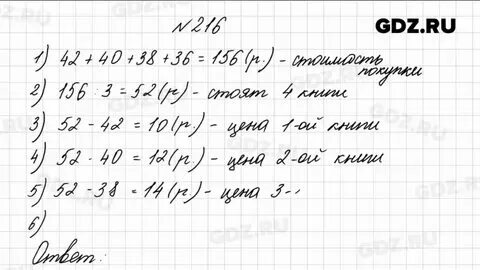 GDZ.RU
№216
1) 42+40+38+36=156(р.) - стоимость
покупки
2) 156 : 3 = 52(р) - стоят 4 книги
3) 52 - 42 = 10(р) - цена 1-ой книги
4) 52 - 40 = 12(р) - цена 2-ой книги
5) 52 - 38 = 14(р) - цена 3-
6)
Ответ: